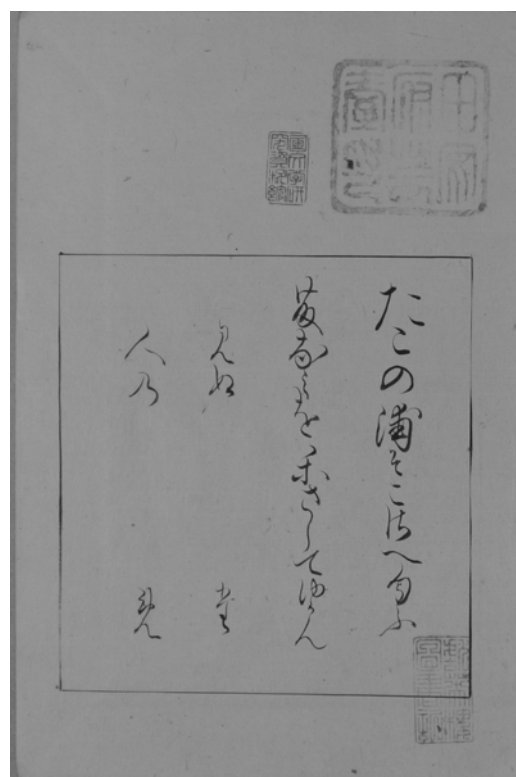 たこの浦そこさへ匂ふ
藤なみをかさしてゆかん
みぬ　た
人の　め